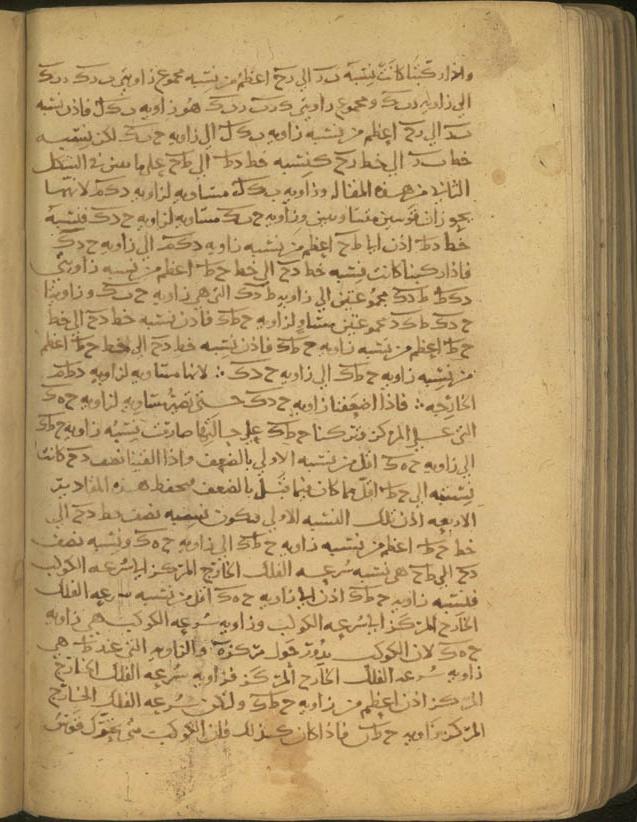 واذا ركبنا كانت نسبة ب د الى د ح اعظم من نسبة مجموع زاويتي ب د ك د ب ك
الى زاوية د ب ك ومجموع زاويتي ك د ب د ب ك هو زاوية ب ك ل فاذن نسبة
ب د الى د ح اعظم من نسبة زاوية ب ك ل الى زاوية ح ب ك لكن نسبة
خط ب د الى خط د ح كنسبة خط د ط الى ط ح على ما بين في الشكل
الثاني من هذه المقالة وزاوية ب ك ل مساوية لزاوية د ك م لانهما
يحوزان قوسين متساويتين وزاوية ح ب ك مساوية لزاوية ح د ك فنسبة
خط د ط اذن الى ط ح اعظم من نسبة زاوية د ك م الى زاوية ح د ك
فاذا ركبنا كانت نسبة خط د ح الى خط ح ط اعظم من نسبة زاويتي
د ك ط ط د ك مجموعتين الى زاوية ط د ك التي هي زاوية ح ب ك وزاويتا
ح د ك ط ك د مجموعتين مساو لزاوية ح ط ك فاذن نسبة خط د ح الى خط
ح ط اعظم من نسبة زاوية ح ط ك فاذن نسبة خط د ح الى خط ح ط اعظم
من نسبة زاوية ح ط ك الى زاوية ح د ك لانها مساوية لزاوية د ط م
الخارجة فاذا اضعفنا زاوية ح د ك حتى تصير مساوية لزاوية ح ه ك
التي على المركز وتركنا ح ط ك على حالتها صارت نسبة زاوية ح ط ك
الى زاوية ح ه ك اقل من نسبة الاولى بالضعف واذا الفينا نصف د ح كانت
نسبته الى ح ط اقل مما كان قبل بالضعف فتحفظ هذه المقادير
الاربعة اذن تلك النسبة الاولى فتكون نسبة نصف خط د ح الى
خط ح ط اعظم من نسبة زاوية ح ط ك الى زاوية ح ه ك ونسبة نصف
د ح الى ط ح هي نسبة سرعة الفلك الخارج المركز الى سرعة الكوكب
فنسبة زاوية ح ط ك اذن الى زاوية ح ه ك اقل من نسبة سرعة الفلك
الخارج المركز الى سرعة الكوكب وزاوية سرعة الكوكب هي زاوية
ح ه ك لان الكوكب يدور حول مركز ه والزاوية التي عند ط هي
زاوية سرعة الفلك الخارج المركز فزاوية سرعة الفلك الخارج
المركز اذن اعظم من زاوية ح ط ك ولتكن سرعة الفلك الخارج
المركز زاوية ح ط فاذا كان كذلك فان الكوكب متى تحرك قوس